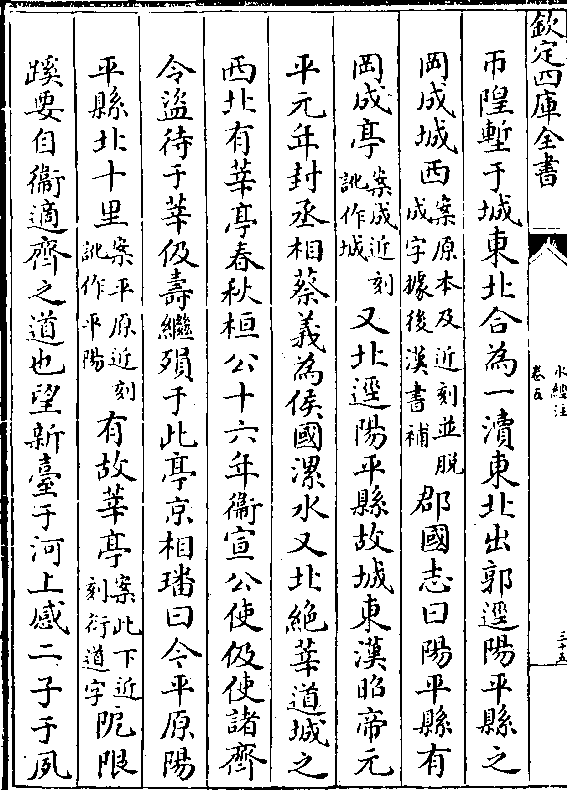 欽定四庫全書
水經注
卷五
三十五
帀隍塹于城東北合為一瀆東北出郭逕陽平縣之
岡成城西案原本及近刻並脫成字據後漢書補郡國志曰陽平縣有
岡成亭案成近刻訛作城又北逕陽平縣故城東漢昭帝元
平元年封丞相蔡義為侯國漯水又北絶莘道城之
西北有莘亭春秋桓公十六年衞宣公使伋使諸齊
令盜待于莘伋壽繼殞于此亭京相璠曰今平原陽
平縣北十里案平原近刻訛作平陽有故莘亭案此下近刻衍道字阨限
蹊要自衞適齊之道也望新臺于河上感二子于夙